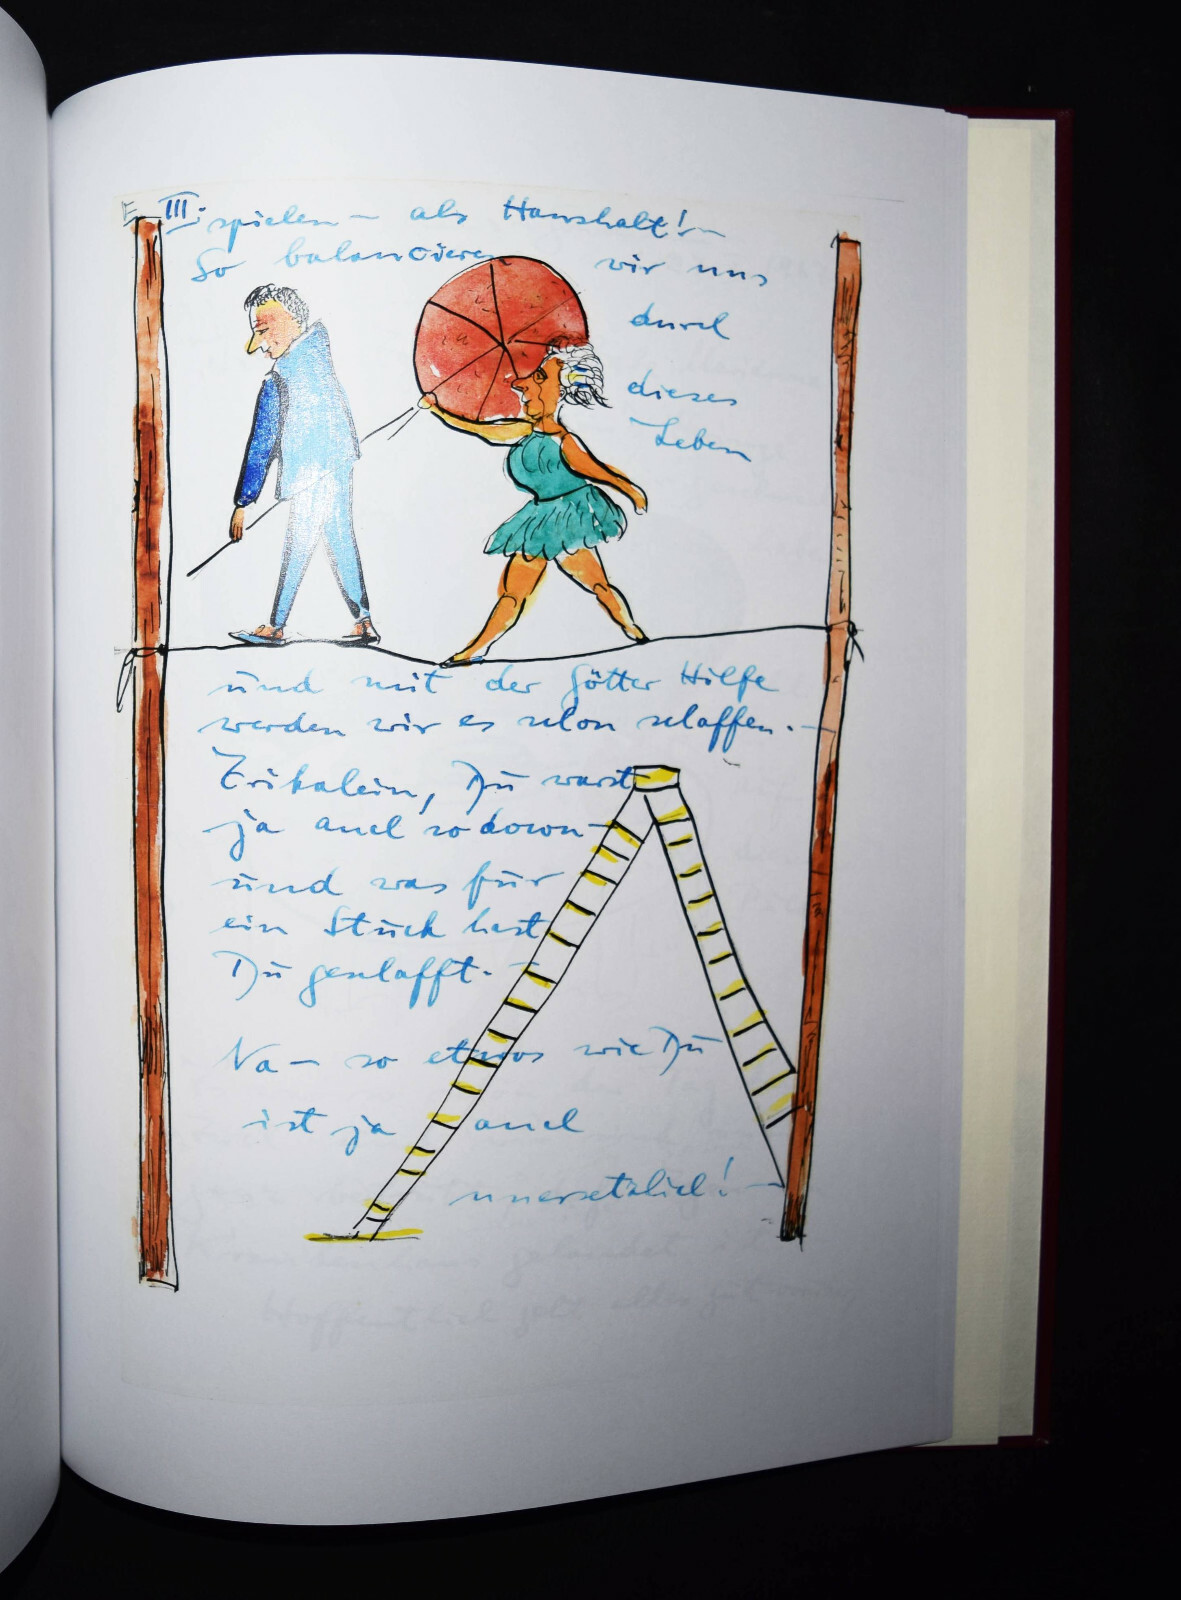 E III. spielen – als Haushalt! –
So balancieren wir uns
durch
dieses
Leben
und mit der Götter Hilfe
werden wir es schon schaffen. –
Erikalein, Du warst
ja auch so down –
und was für
ein Stück hast
Du geschafft. –
Na – so etwas wie Du
ist ja auch
unersetzlich! –